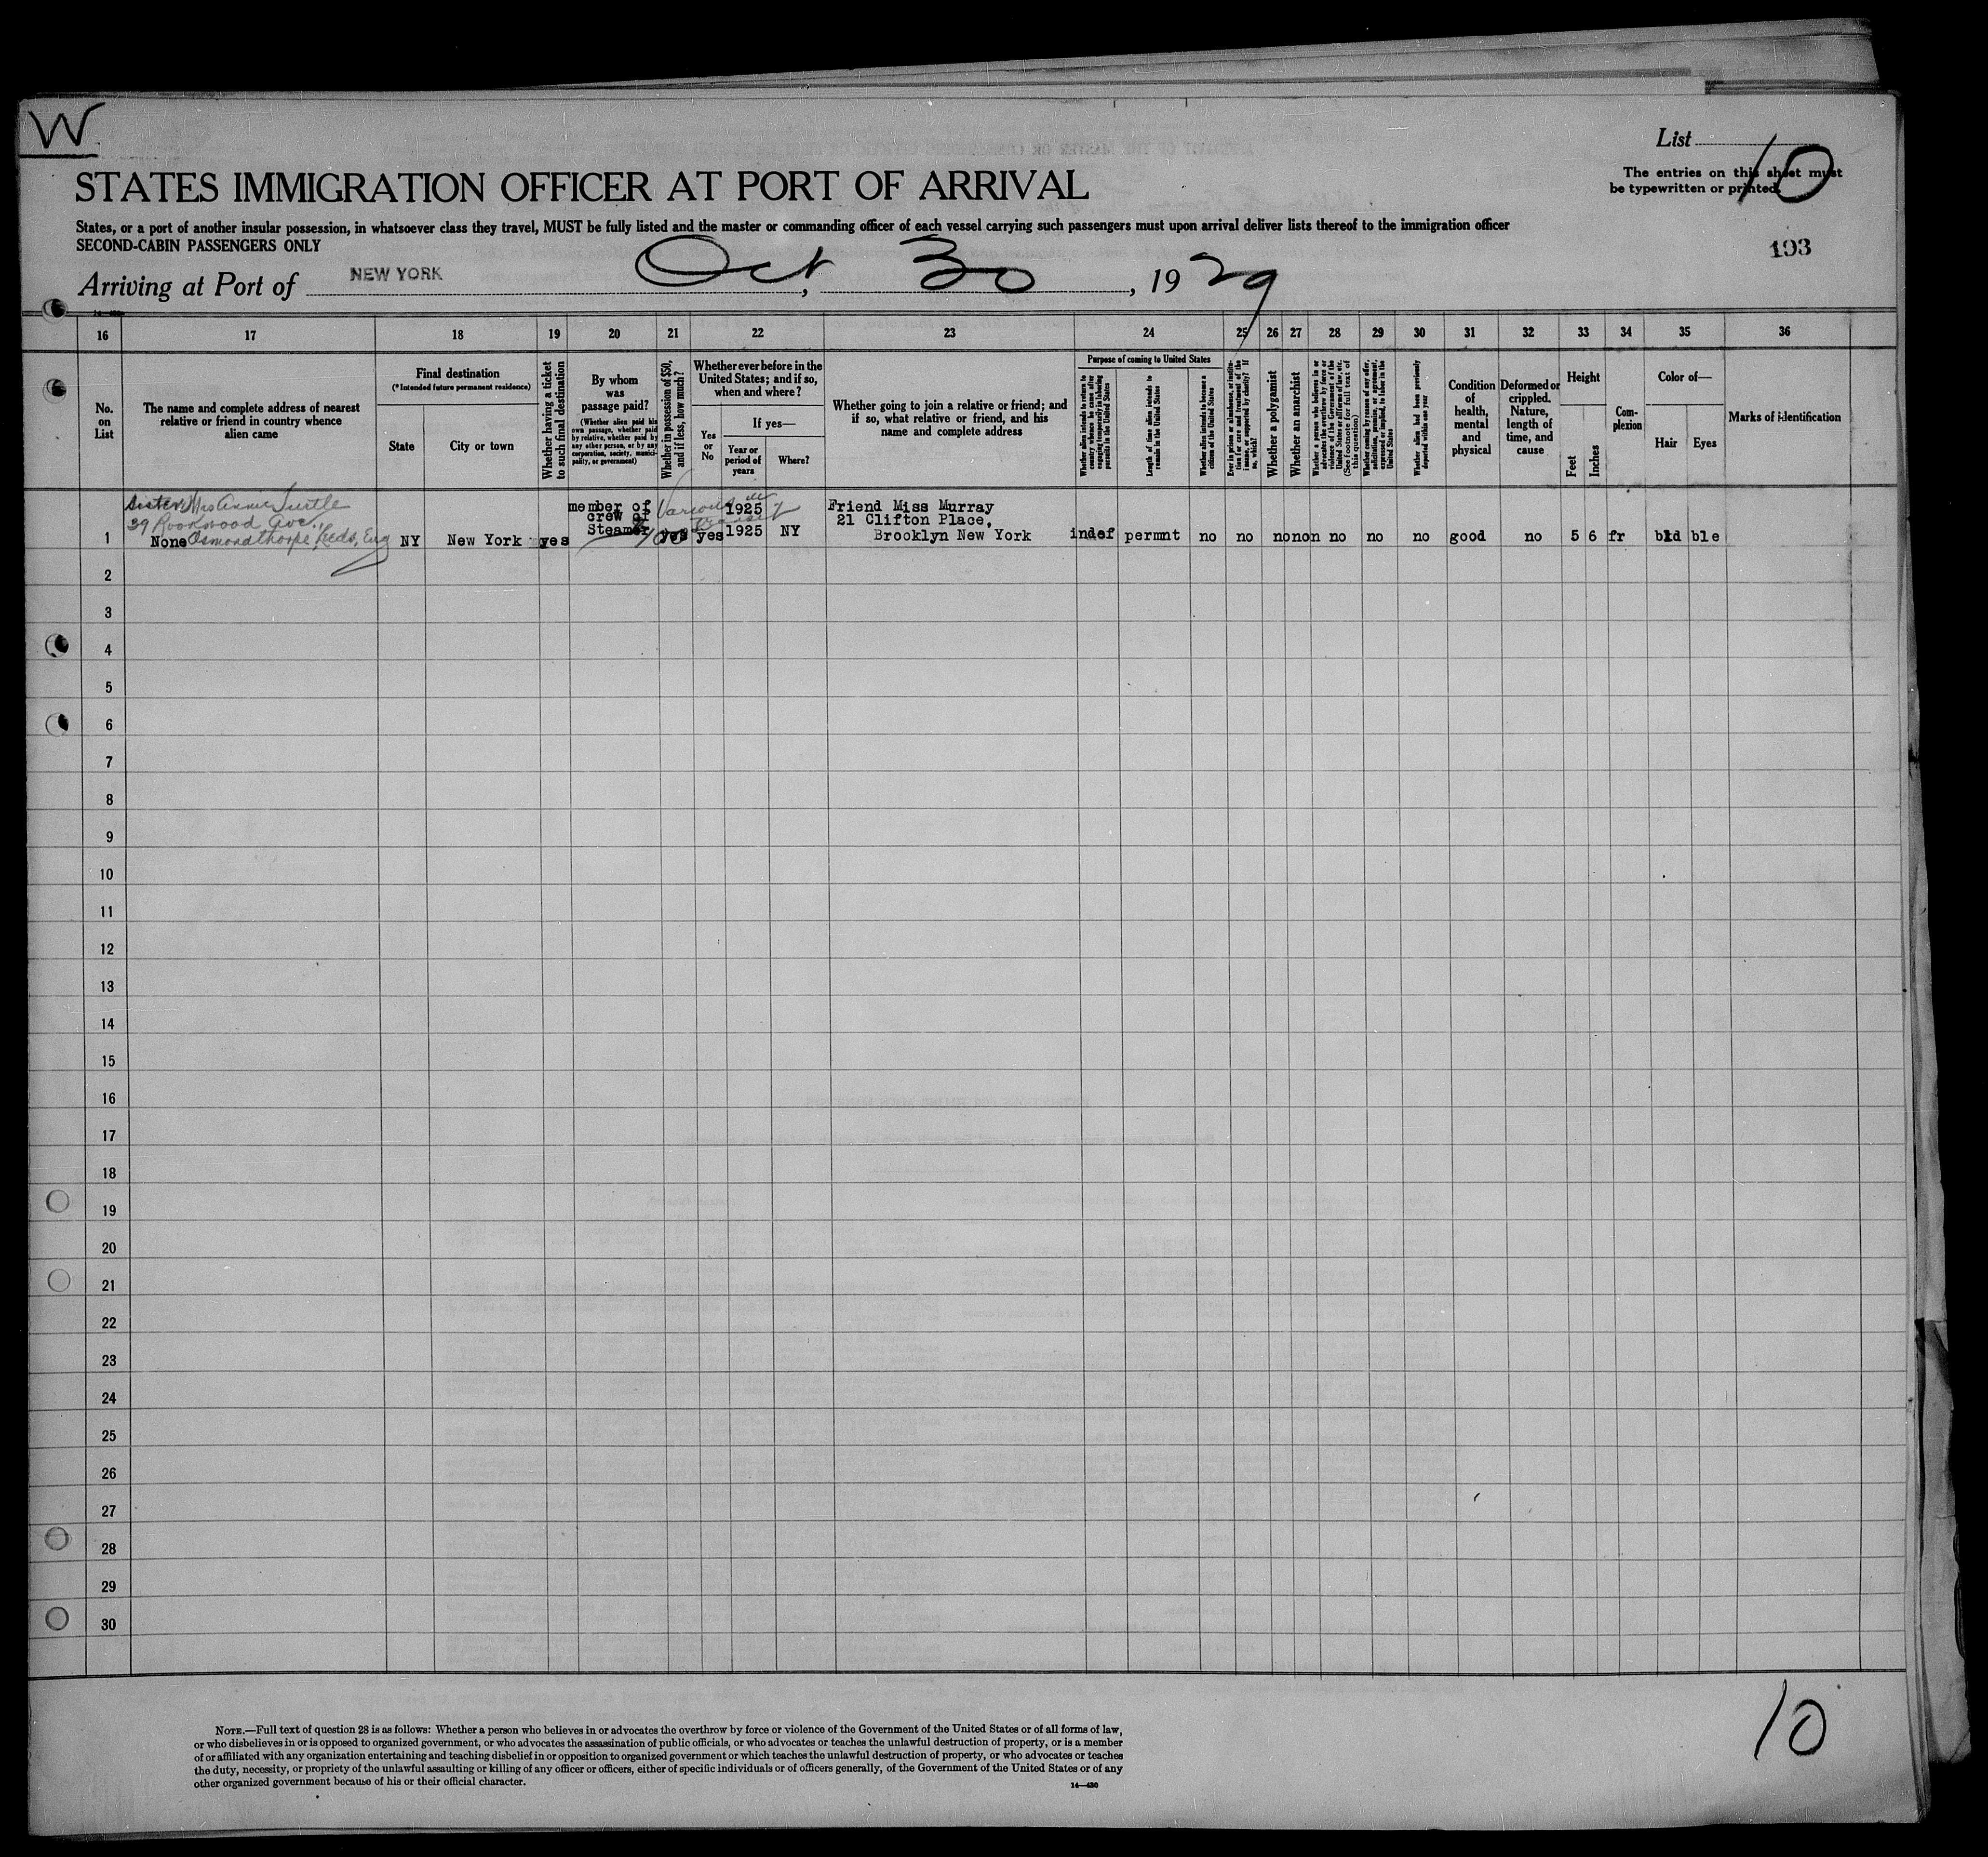 W
List 10
The entries on this sheet must
be typewritten or printed.
STATES IMMIGRATION OFFICER AT PORT OF ARRIVAL
States, or a port of another insular possession, in whatsoever class they travel, MUST be fully listed and the master or commanding officer of each vessel carrying such passengers must upon arrival deliver lists thereof to the immigration officer
SECOND-CABIN PASSENGERS ONLY
193
Arriving at Port of NEW YORK Oct, 30, 1929
16 17 18 19 20 21 22 23 24 25 26 27 28 29 30 31 32 33 34 35 36
No.
on
List
The name and complete address of nearest
relative or friend in country whence
alien came
Final destination
(*Intended future permanent residence)
State
City or town
Whether having a ticket
to such final destination
By whom
was
passage paid?
(Whether alien paid his
own passage, whether paid
by relative, whether paid by
any other person, or by any
corporation, society, munici-
pality, or government)
Whether in possession of $50,
and if less, how much?
Whether ever before in the
United States; and if so,
when and where?
Yes
or
No
If yes—
Year or
period of
years
Where?
Whether going to join a relative or friend; and
if so, what relative or friend, and his
name and complete address
Purpose of coming to United States
Whether alien intends to return to
country whence he came after
engaging temporarily in laboring
pursuits in the United States
Length of time alien intends to
remain in the United States
Whether alien intends to become a
citizen of the United States
Ever in prison or almshouse, or institu-
tion for care and treatment of the
insane, or supported by charity? If
so, which?
Whether a polygamist
Whether an anarchist
Whether a person who believes in or
advocates the overthrow by force or
violence of the Government of the
United States or all forms of law, etc.
(See footnote for full text of
this question)
Whether coming by reason of any offer,
solicitation, promise, or agreement,
expressed or implied, to labor in the
United States
Whether alien had been previously
deported within one year
Condition
of
health,
mental
and
physical
Deformed or
crippled.
Nature,
length of
time, and
cause
Height
Feet
Inches
Com-
plexion
Color of—
Hair
Eyes
Marks of identification
Sister Mrs Annie Turtle
39 Rookwood Ave.,
None Osmondthorpe, Leeds, Eng
1
NY
New York
yes
member of
crew of
Steamer
400
yes
yes
Various in
transit
1925
1925
NY
Friend Miss Murray
21 Clifton Place,
Brooklyn New York
indef permnt no no no non no no no good no 5 6 fr bld ble
2
3
4
5
6
7
8
9
10
11
12
13
14
15
16
17
18
19
20
21
22
23
24
25
26
27
28
29
30
10
NOTE.—Full text of question 28 is as follows: Whether a person who believes in or advocates the overthrow by force or violence of the Government of the United States or of all forms of law,
or who disbelieves in or is opposed to organized government, or who advocates the assassination of public officials, or who advocates or teaches the unlawful destruction of property, or is a member
of or affiliated with any organization entertaining and teaching disbelief in or opposition to organized government or which teaches the unlawful destruction of property, or who advocates or teaches
the duty, necessity, or propriety of the unlawful assaulting or killing of any officer or officers, either of specific individuals or of officers generally, of the Government of the United States or of any
other organized government because of his or their official character.
14—430